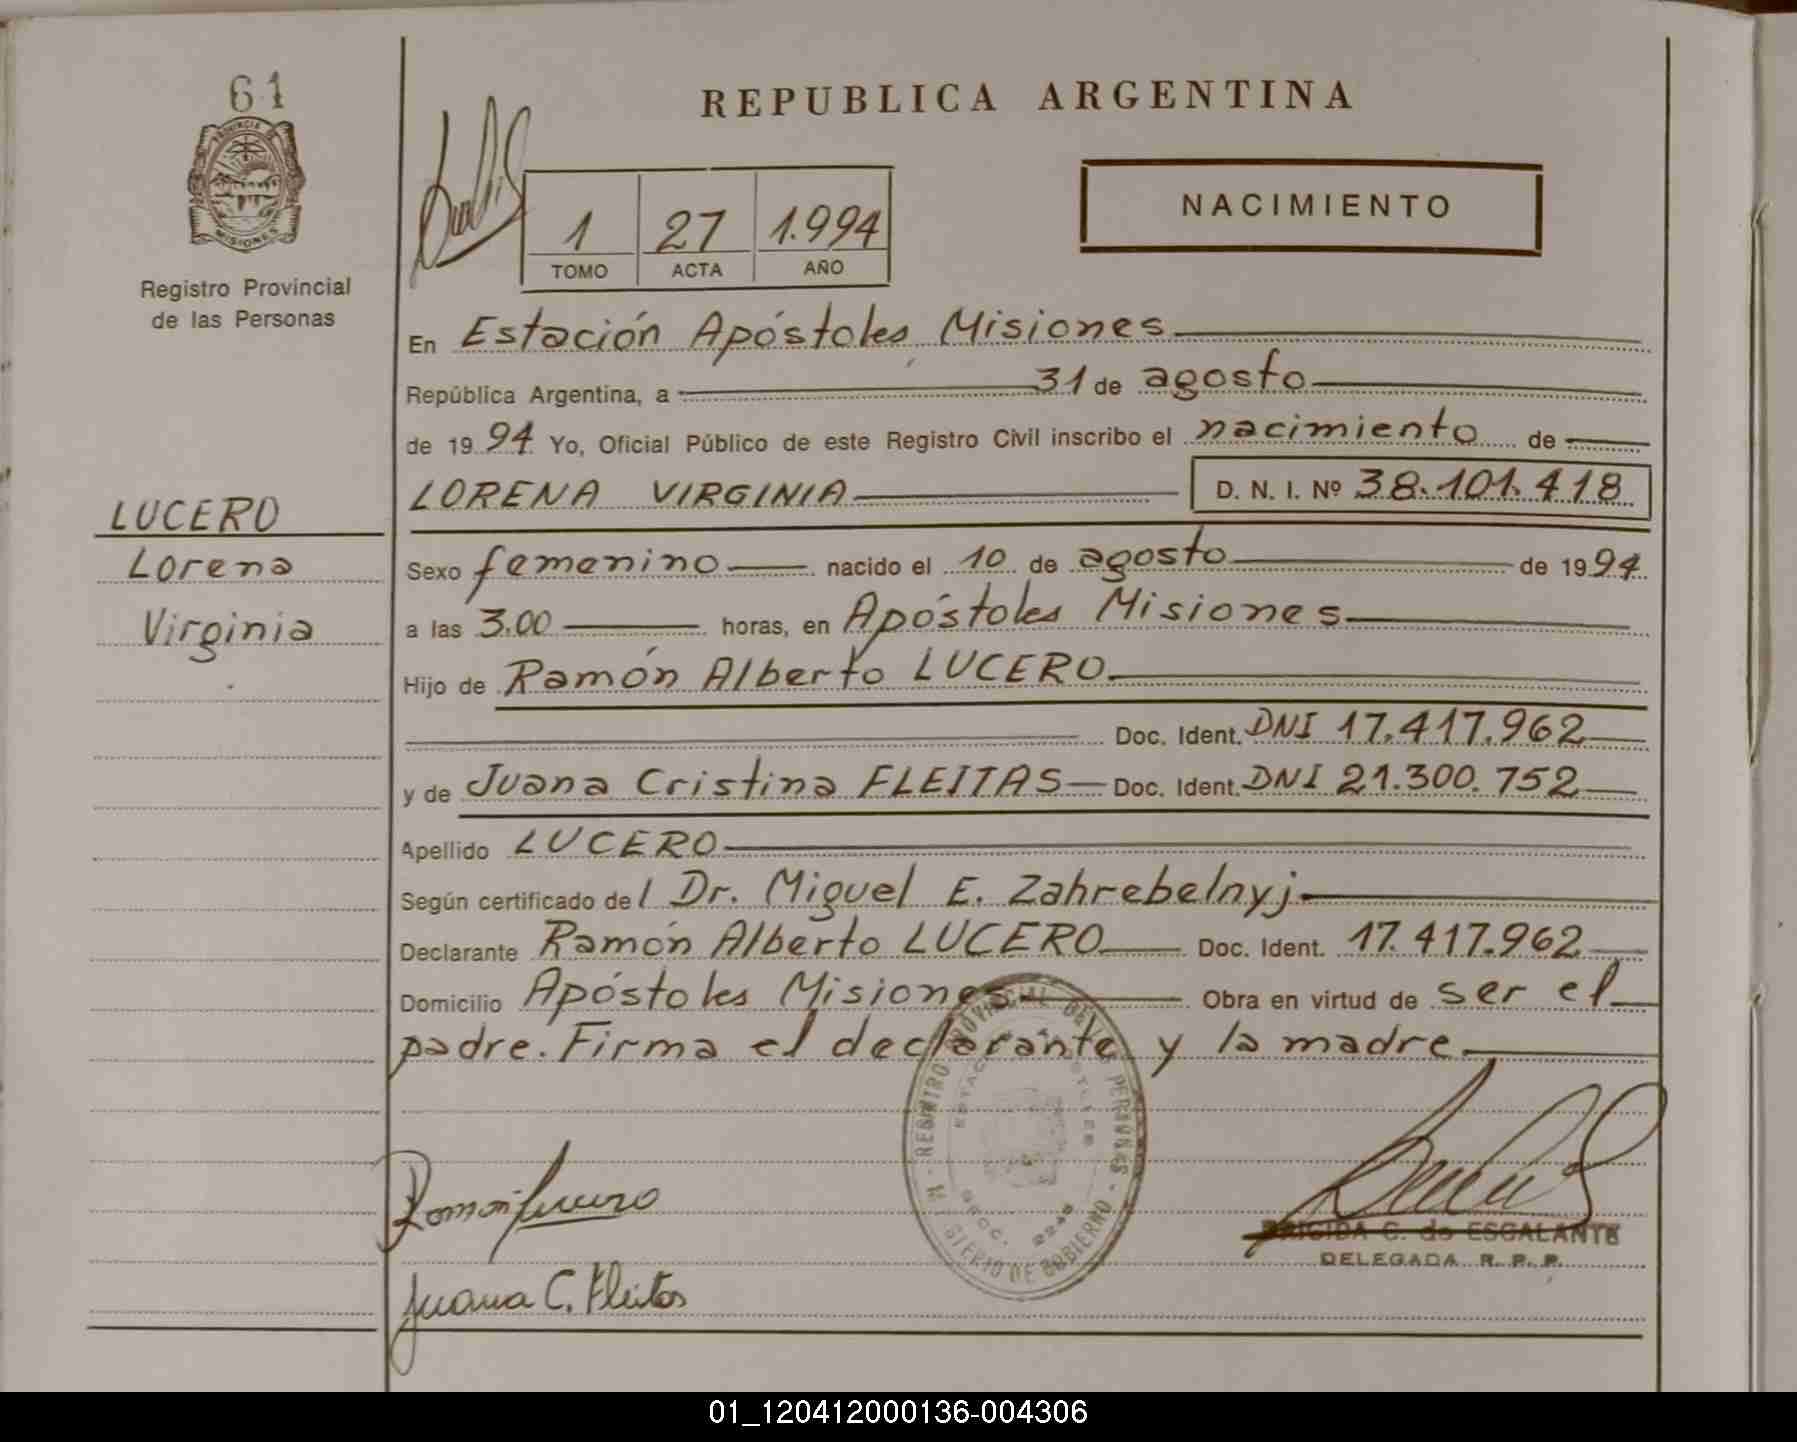 61
PROVINCIA DE
MISIONES
Registro Provincial
de las Personas
REPUBLICA ARGENTINA
NACIMIENTO
1 27 1.994
TOMO ACTA AÑO
En Estación Apóstoles, Misiones
República Argentina, a 31 de agosto
de 1994 Yo, Oficial Público de este Registro Civil inscribo el nacimiento de
LORENA VIRGINIA D. N. I. Nº 38.101.418
LUCERO
Lorena
Virginia
Sexo femenino nacido el 10 de agosto de 1994
a las 3.00 horas, en Apóstoles Misiones
Hijo de Ramón Alberto LUCERO
Doc. Ident. DNI 17.417.962
y de Juana Cristina FLEITAS Doc. Ident. DNI 21.300.752
Apellido LUCERO
Según certificado del Dr. Miguel E. Zahrebelnyj
Declarante Ramón Alberto LUCERO Doc. Ident. 17.417.962
Domicilio Apóstoles Misiones Obra en virtud de ser el
padre. Firma el declarante y la madre
REGISTRO PROVINCIAL DE LAS PERSONAS
GOBIERNO
Ramon Lucero
BRIGIDA C. de ESCALANTE
DELEGADA R. P. P.
Juana C. Fleitas
01_120412000136-004306